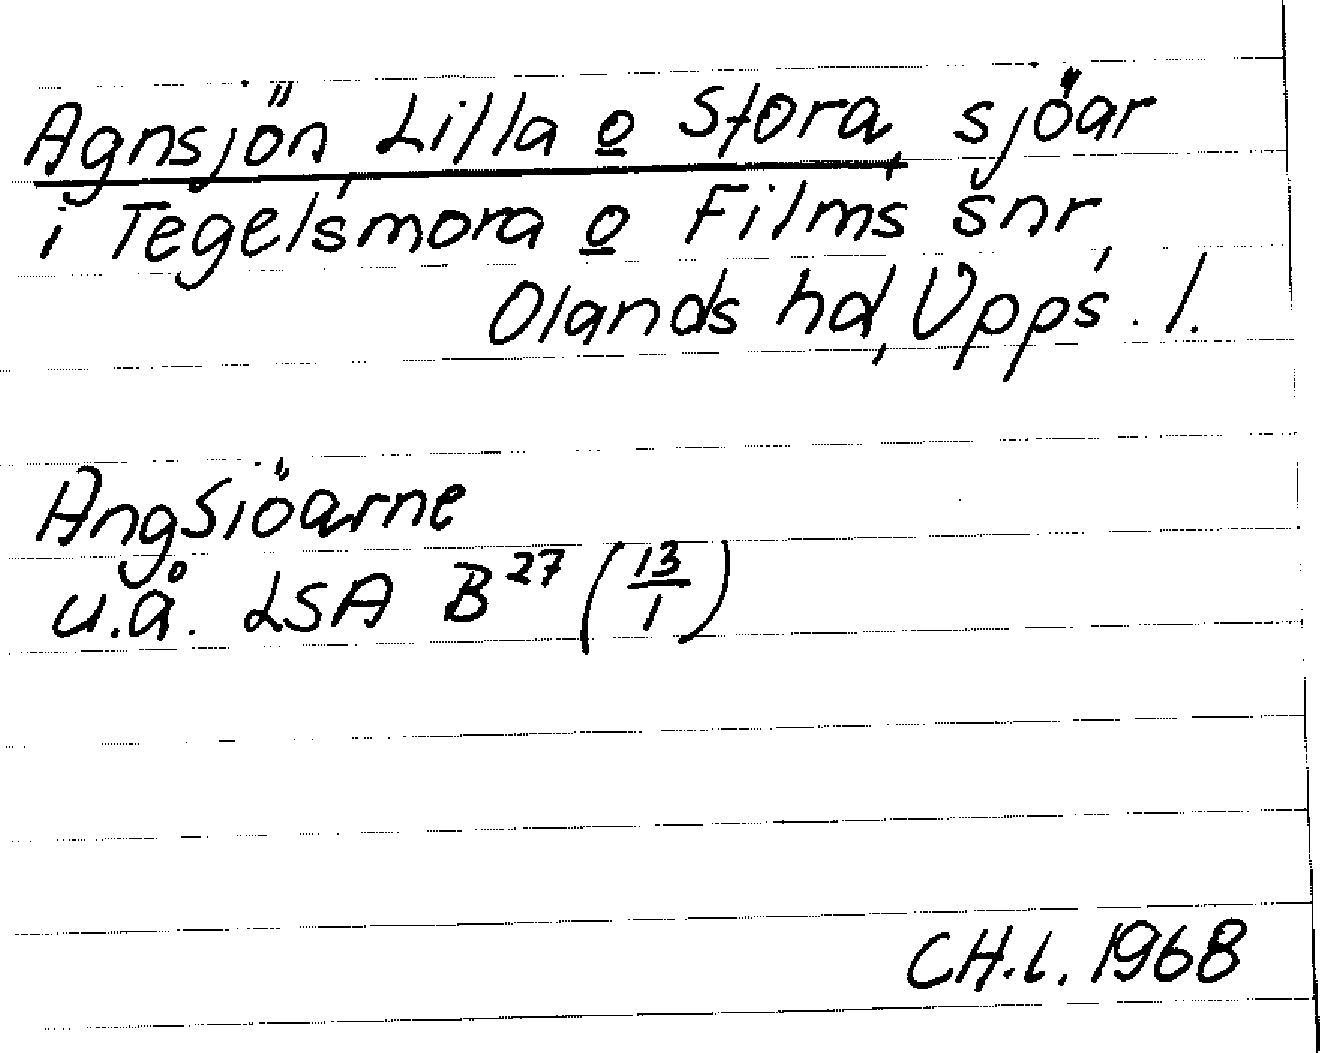 Agnsjön, Lilla o Stora, sjöar
i Tegelsmora o Films snr,
Olands hd, Upps. l.
AngSiöarne
u.å. LSA B27 (13/1)
CH.L. 1968